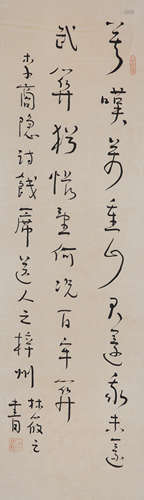 莫嘆萬重山君還我未還
武關猶悵望何況百牢關
李商隱詩餞席送人之梓州
林筱之
書